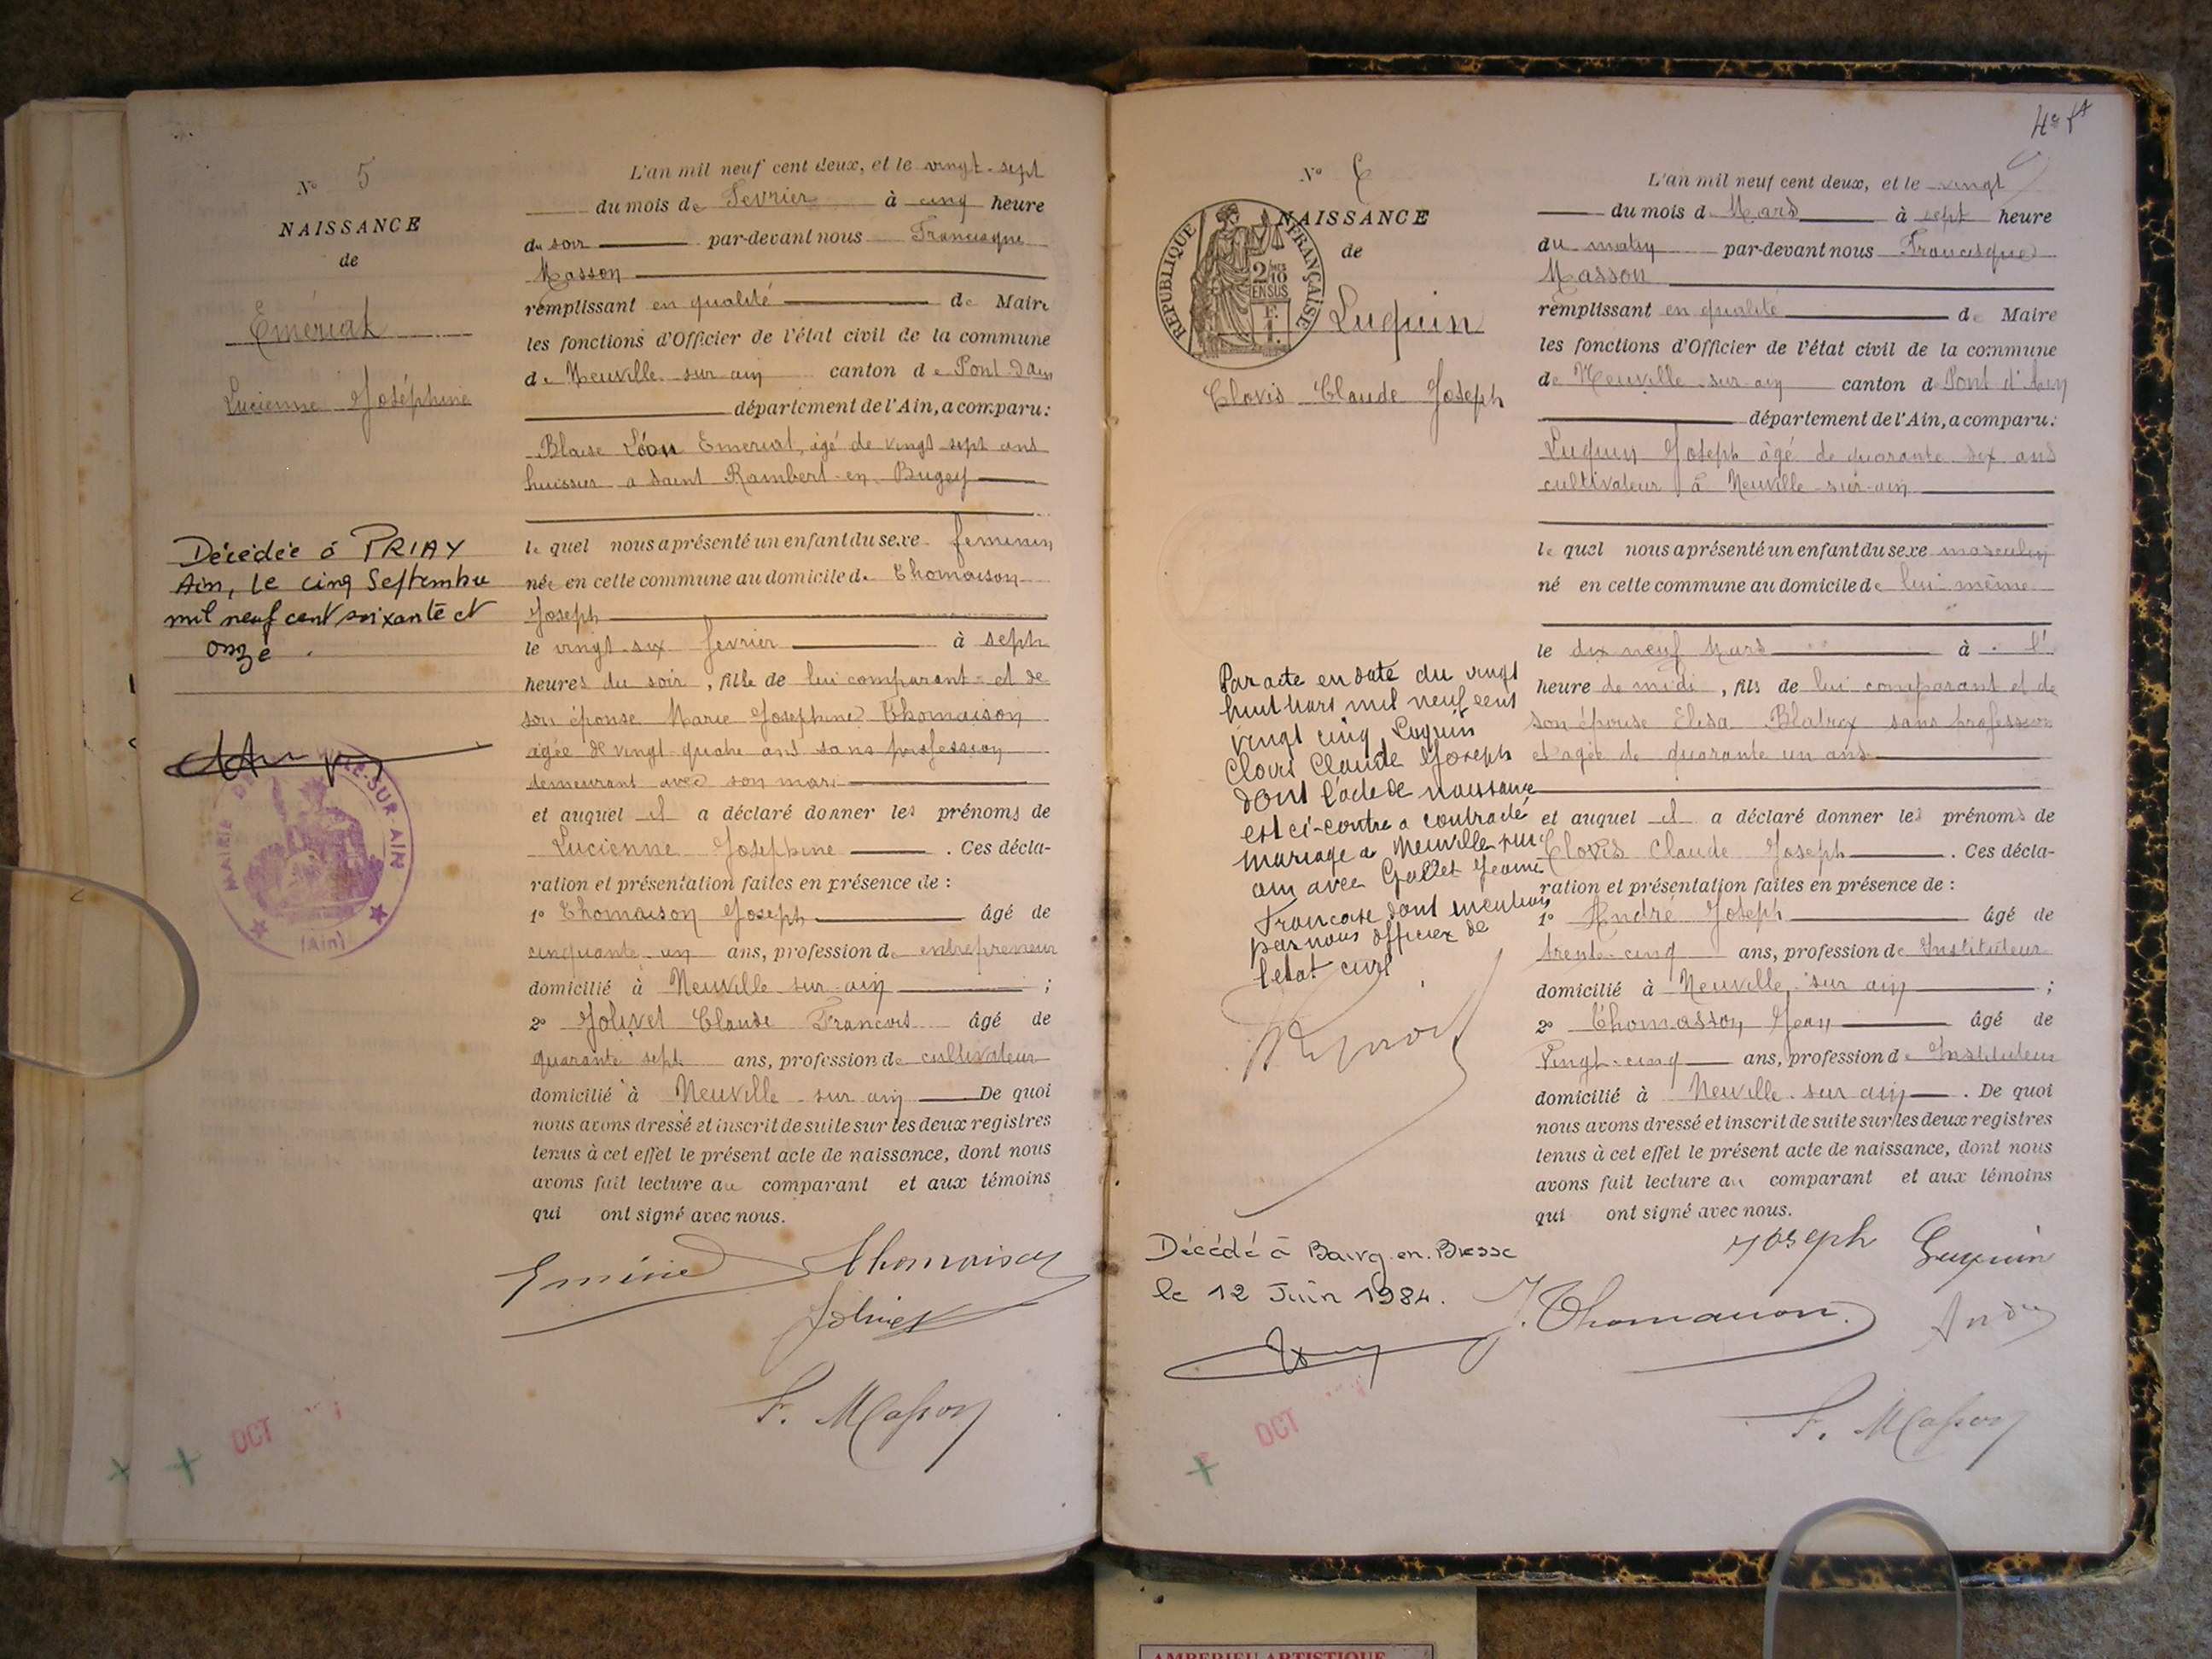 N° 5
NAISSANCE
de
Emeriat
Lucienne Joséphine
Décédée à PRIAY
Ain, le cinq Septembre
mil neuf cent soixante et
onze.
MAIRIE DE SUR-AIN
(Ain)
L'an mil neuf cent deux, et le vingt-sept
du mois de Fevrier à cinq heure
du soir par-devant nous Francisque
Masson
remplissant en qualité de Maire
les fonctions d'Officier de l'état civil de la commune
de Neuville sur ain canton de Pont-d'ain
département de l'Ain, a comparu:
Blaise Léon Emeriat, âgé de vingt sept ans
huissier a Saint Rambert-en-Bugey
le quel nous a présenté un enfant du sexe feminin
née en cette commune au domicile de Thomaison
Joseph
le vingt-six fevrier à sept
heures du soir, fille de lui comparant et de
son épouse Marie Josephine Thomaison
agée de vingt-quatre ans sans profession
demeurant avec son mari
et auquel il a déclaré donner les prénoms de
Lucienne Josephine. Ces décla-
ration et présentation faites en présence de :
1° Thomaison Joseph âgé de
cinquante un ans, profession de entrepreneur
domicilié à Neuville sur ain ;
2° Jolivet Claude Francois âgé de
quarante sept ans, profession de cultivateur
domicilié à Neuville sur ain De quoi
nous avons dressé et inscrit de suite sur les deux registres
tenus à cet effet le présent acte de naissance, dont nous
avons fait lecture au comparant et aux témoins
qui ont signé avec nous.
Thomaison
Jolivet
F. Masson
OCT
N° 6
NAISSANCE
de
REPUBLIQUE FRANÇAISE
2/10 EN SUS
Luquin
Clovis Claude Joseph
Par acte en date du vingt
huit Mars mil neuf cent
vingt cinq Luquin
Clovis Claude Joseph
dont l'acte de naissance
est ci-contre a contracté
mariage a Neuville sur
ain avec Gallet Jeanne
Francoise dont mention
par nous officier de
l'état civil
Décédé à Bourg-en-Bresse
le 12 Juin 1984.
L'an mil neuf cent deux, et le vingt
du mois de Mars à sept heure
du matin par-devant nous Francisque
Masson
remplissant en qualité de Maire
les fonctions d'Officier de l'état civil de la commune
de Neuville sur-ain canton de Pont d'Ain
département de l'Ain, a comparu:
Luquin Joseph âgé de quarante six ans
cultivateur à Neuville-sur-ain
le quel nous a présenté un enfant du sexe masculin
né en cette commune au domicile de lui-même
le dix neuf Mars à l'
heure de midi, fils de lui comparant et de
son épouse Elisa Blatrix sans profession
et agée de quarante un ans
et auquel il a déclaré donner les prénoms de
Clovis Claude Joseph. Ces décla-
ration et présentation faites en présence de :
1° André Joseph âgé de
trente-cinq ans, profession de Instituteur
domicilié à Neuville sur ain ;
2° Thomasson Jean âgé de
Vingt-cinq ans, profession de Instituteur
domicilié à Neuville sur ain. De quoi
nous avons dressé et inscrit de suite sur les deux registres
tenus à cet effet le présent acte de naissance, dont nous
avons fait lecture au comparant et aux témoins
qui ont signé avec nous.
Joseph Luquin
J. Thomasson André
F. Masson
OCT
AMBERIEU ARTISTIQUE